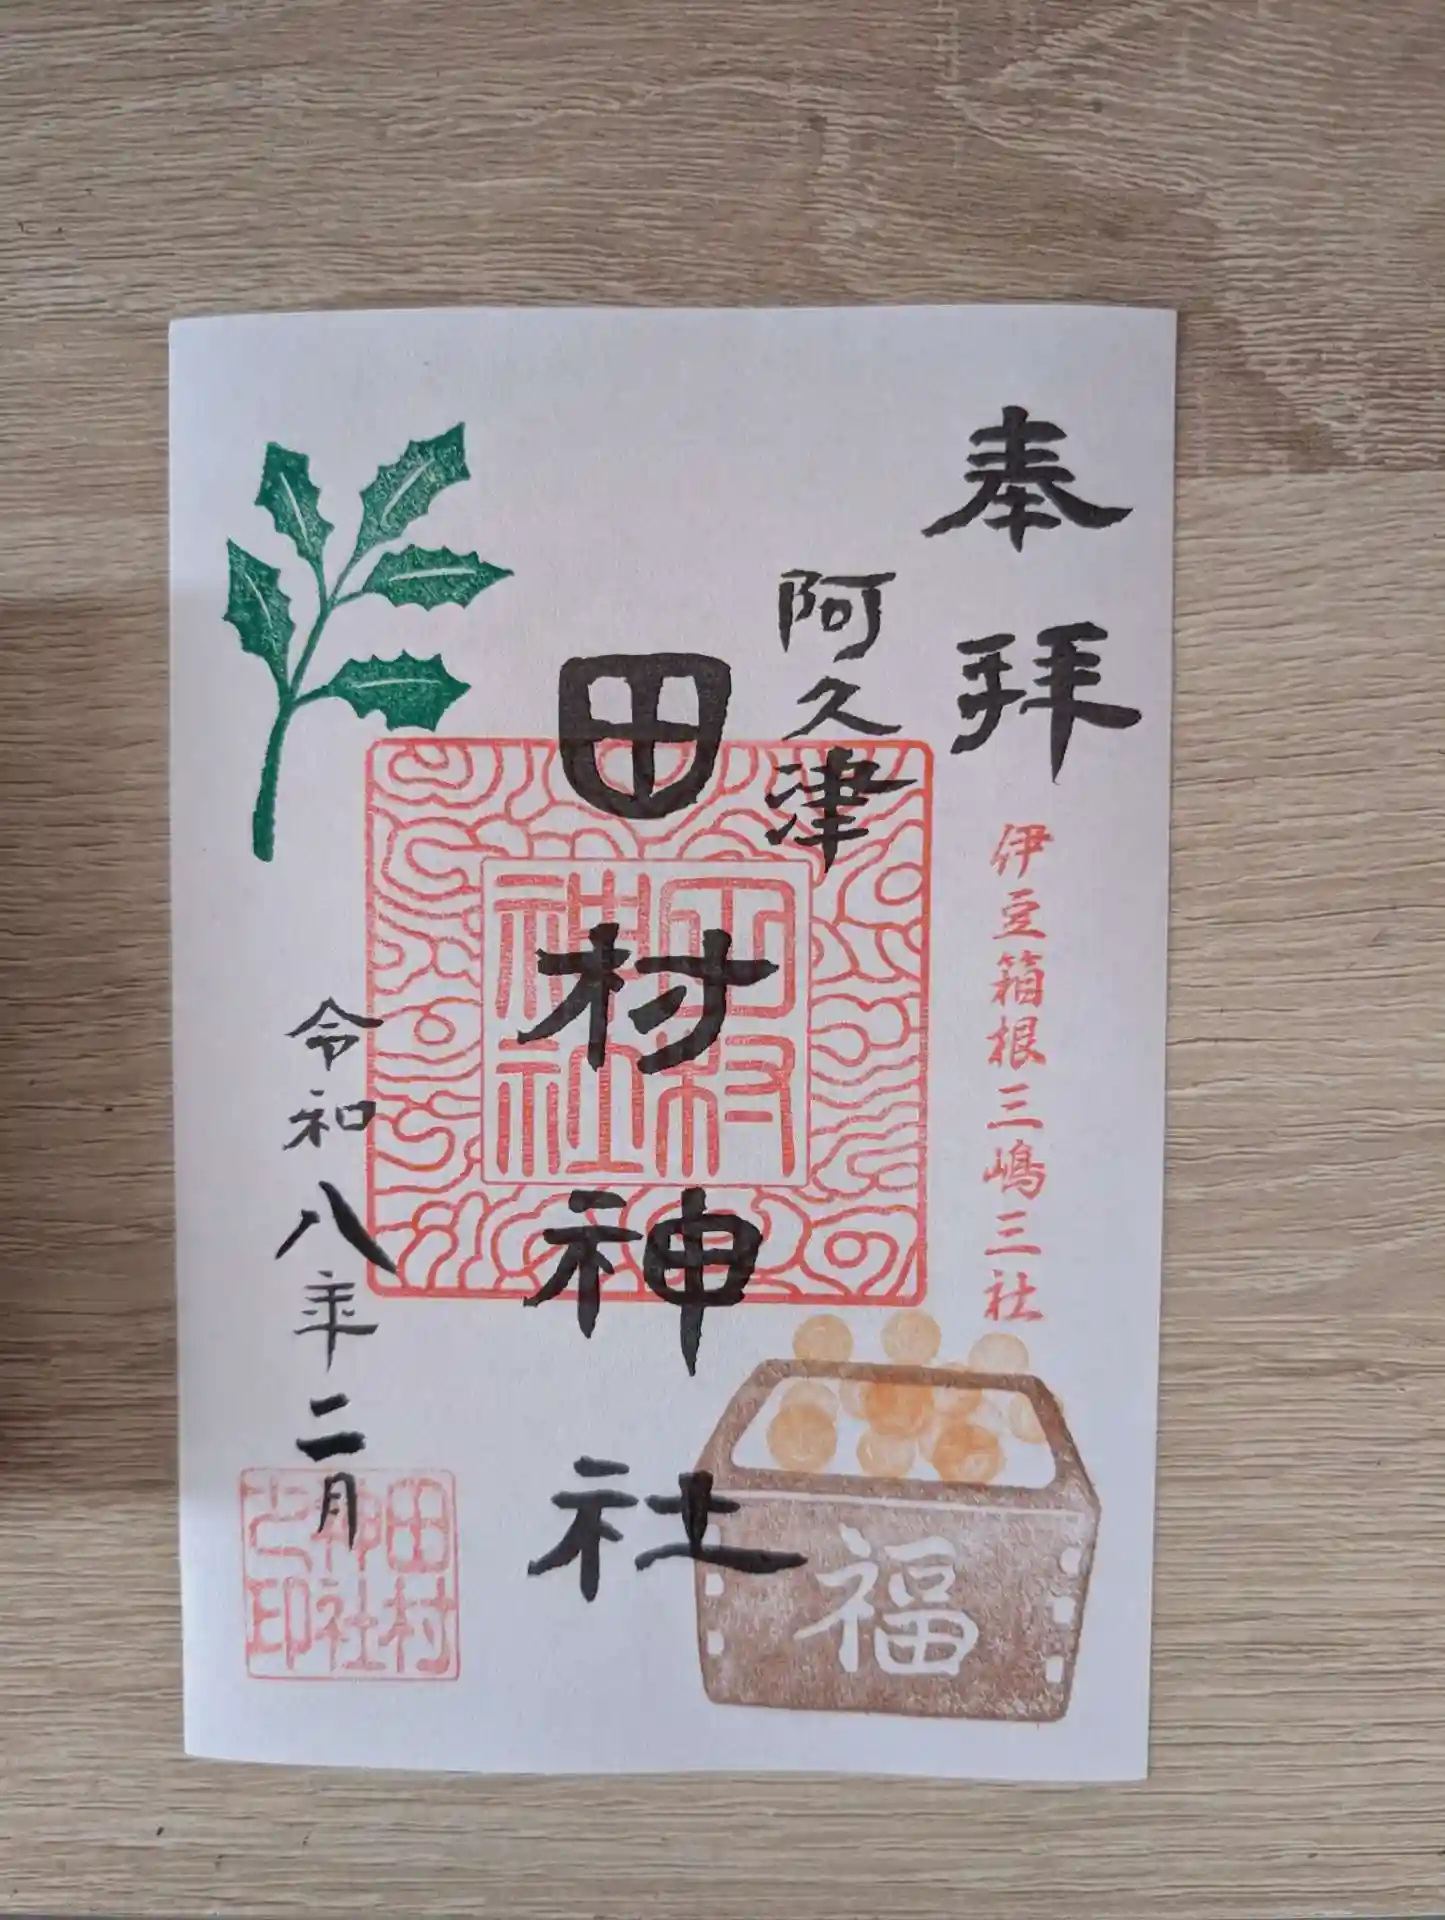 奉拝
伊豆箱根三嶋三社
阿久津
田村神社
田村神社
福
令和八年二月
田村神社之印